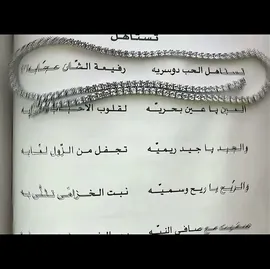 تستاهل
تستاهل الحب دوسريه رفيعة الشان
العين يا عين بحريّه لقلوب
والجيد يا جيد ريميّه تجفل من الزّول لغابه
والرّيح يا ريح وسميّه نبت الخزامى
صافي النيّه